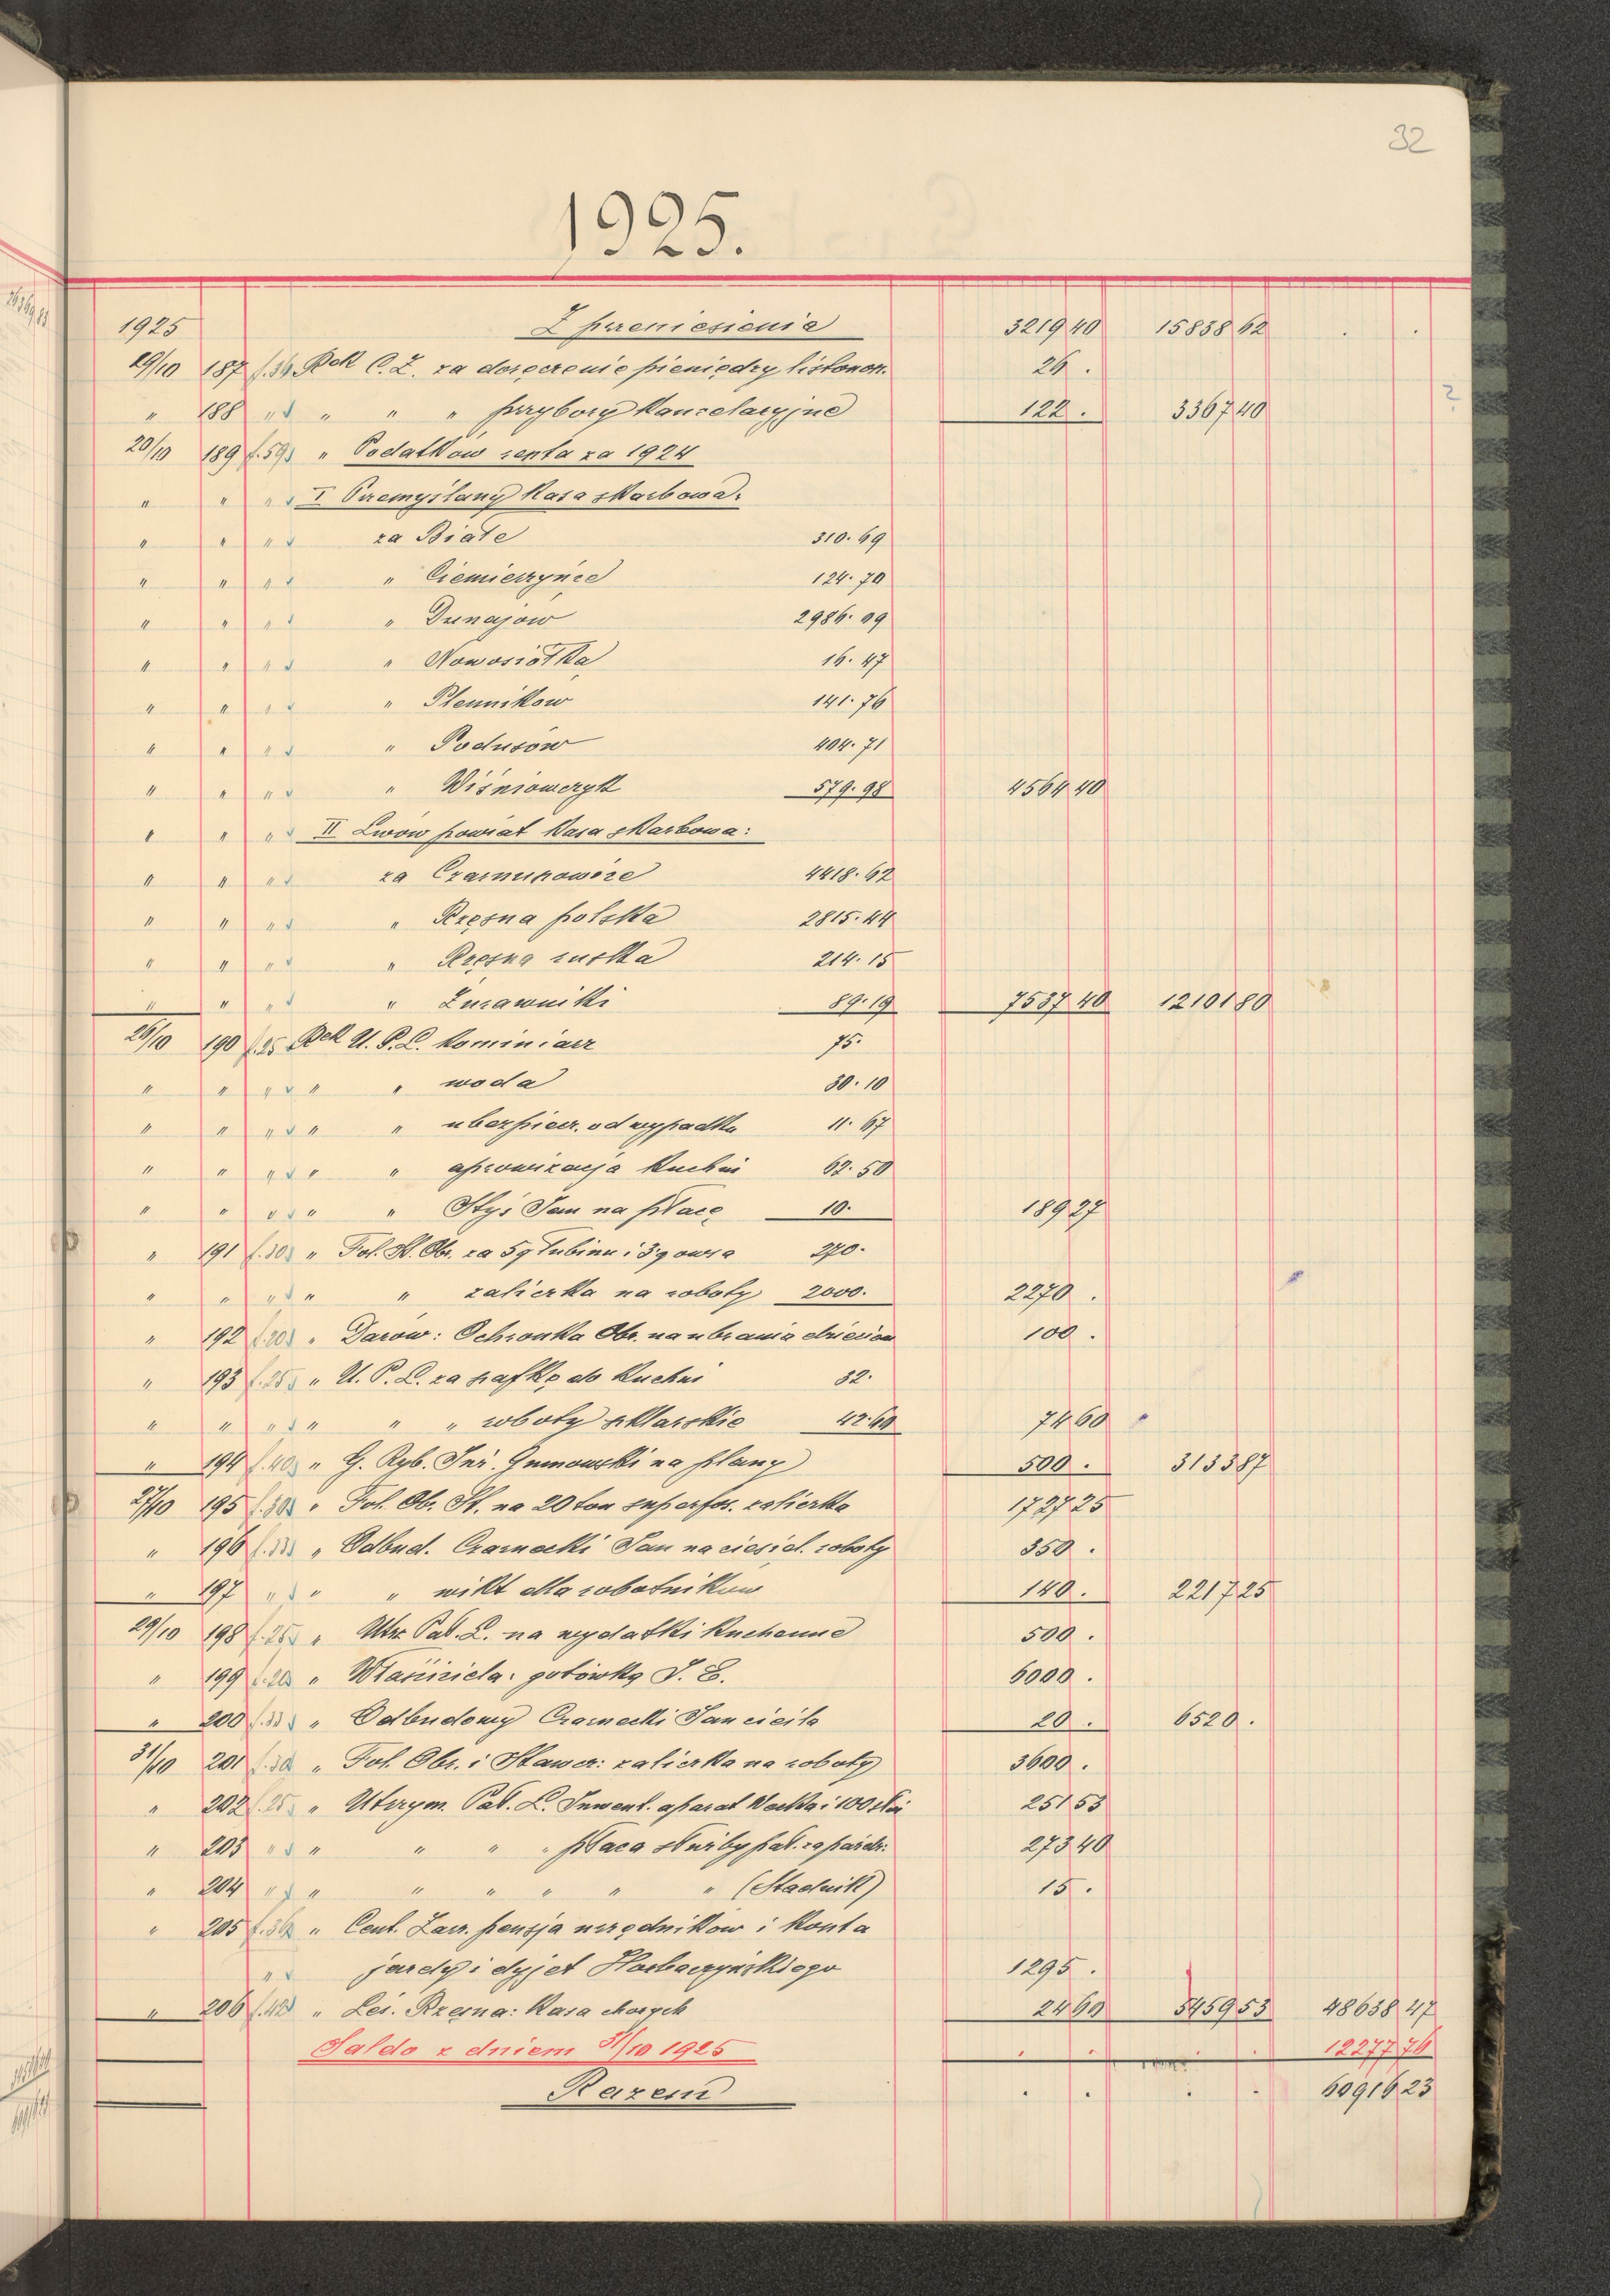 32
1925.
1925 Z przeniesienia 3219 40 15838 62 . .
19/10 187 f.34 Rek C. Z. za doręczenie pieniędzy listonosz. 26 .
" 188 " " " " przybory kancelaryjne 122 . 3367 40
20/10 189 f.59 " Podatków renta za 1924
" " " I Przemyślany Kasa skarbowa:
" " " za Białe 310.69
" " " " Ciemierzyńce 124.70
" " " " Dunajów 2986.09
" " " " Nowosiółka 16.47
" " " " Plenników 141.76
" " " " Podusów 404.71
" " " " Wiśniowczyk 579.98 4564 40
" " " II Lwów powiat Kasa skarbowa:
" " " za Czarnuszowice 4418.62
" " " " Rzęsna polska 2815.44
" " " " Rzęsna ruska 214.15
" " " " Żurawniki 89.19 7537 40 12101 80
26/10 190 f.25 Rek U. P. L. kominiarz 75.
" " " " " woda 30.10
" " " " " ubezpiecz. od wypadku 11.67
" " " " " aprowizacja kuchni 62.50
" " " " " Styś Jan na płacę 10. 189 27
" 191 f.30 " Fol. St. Obr. za 5q łubinu i 3q owsa 270.
" " " " " zaliczka na roboty 2000. 2270 .
" 192 f.20 " Darów: Ochronka Obr. na ubrania dzieciom 100 .
" 193 f.25 " U. P. L. za szafkę do kuchni 32.
" " " " " " roboty szklarskie 42.60 74 60
" 194 f.40 " G. Ryb. Inż. Gumowski na plany 500 . 3133 87
27/10 195 f.30 " Fol. Ob. St. na 20 ton superfos. zaliczka 1727 25
" 196 f.33 " Odbud. Czarnecki Jan na ciesiel. roboty 350 .
" 197 " " " wikt dla robotników 140 . 2217 25
29/10 198 f.25 " Utrz. Pał. L. na wydatki kuchenne 500 .
" 199 f.20 " Właściciela: gotówką J. E. 6000 .
" 200 f.33 " Odbudowy Czarnecki Jan cieśla 20 . 6520 .
31/10 201 f.30 " Fol. Obr. i Stawcz: zaliczka na roboty 3600 .
" 202 f.25 " Utrzym. Pał. L. Inwent. aparat Wecka i 100 słoi 251 53
" 203 " " " " " płaca służby pał. za paźdz: 273 40
" 204 " " " " " " " (Stadnik) 15 .
" 205 f.36 " Cent. Zarz. pensja urzędników i konta
" jazdy i dyjet Horbaczyńskiego 1295 .
" 206 f.42 " Leś. Rzęsna: Kasa chorych 24 60 5459 53 48638 47
Saldo z dniem 31/10 1925 . . . . 12277 76
Razem . . . . 60916 23